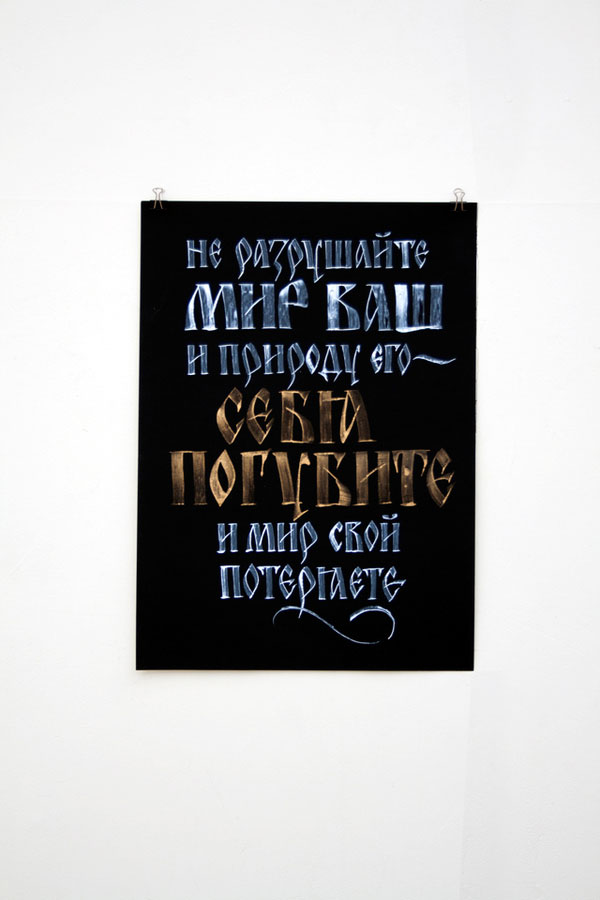 не разрушайте
мир ваш
и природу его
себꙗ
погубите
и мир свой
потерꙗете